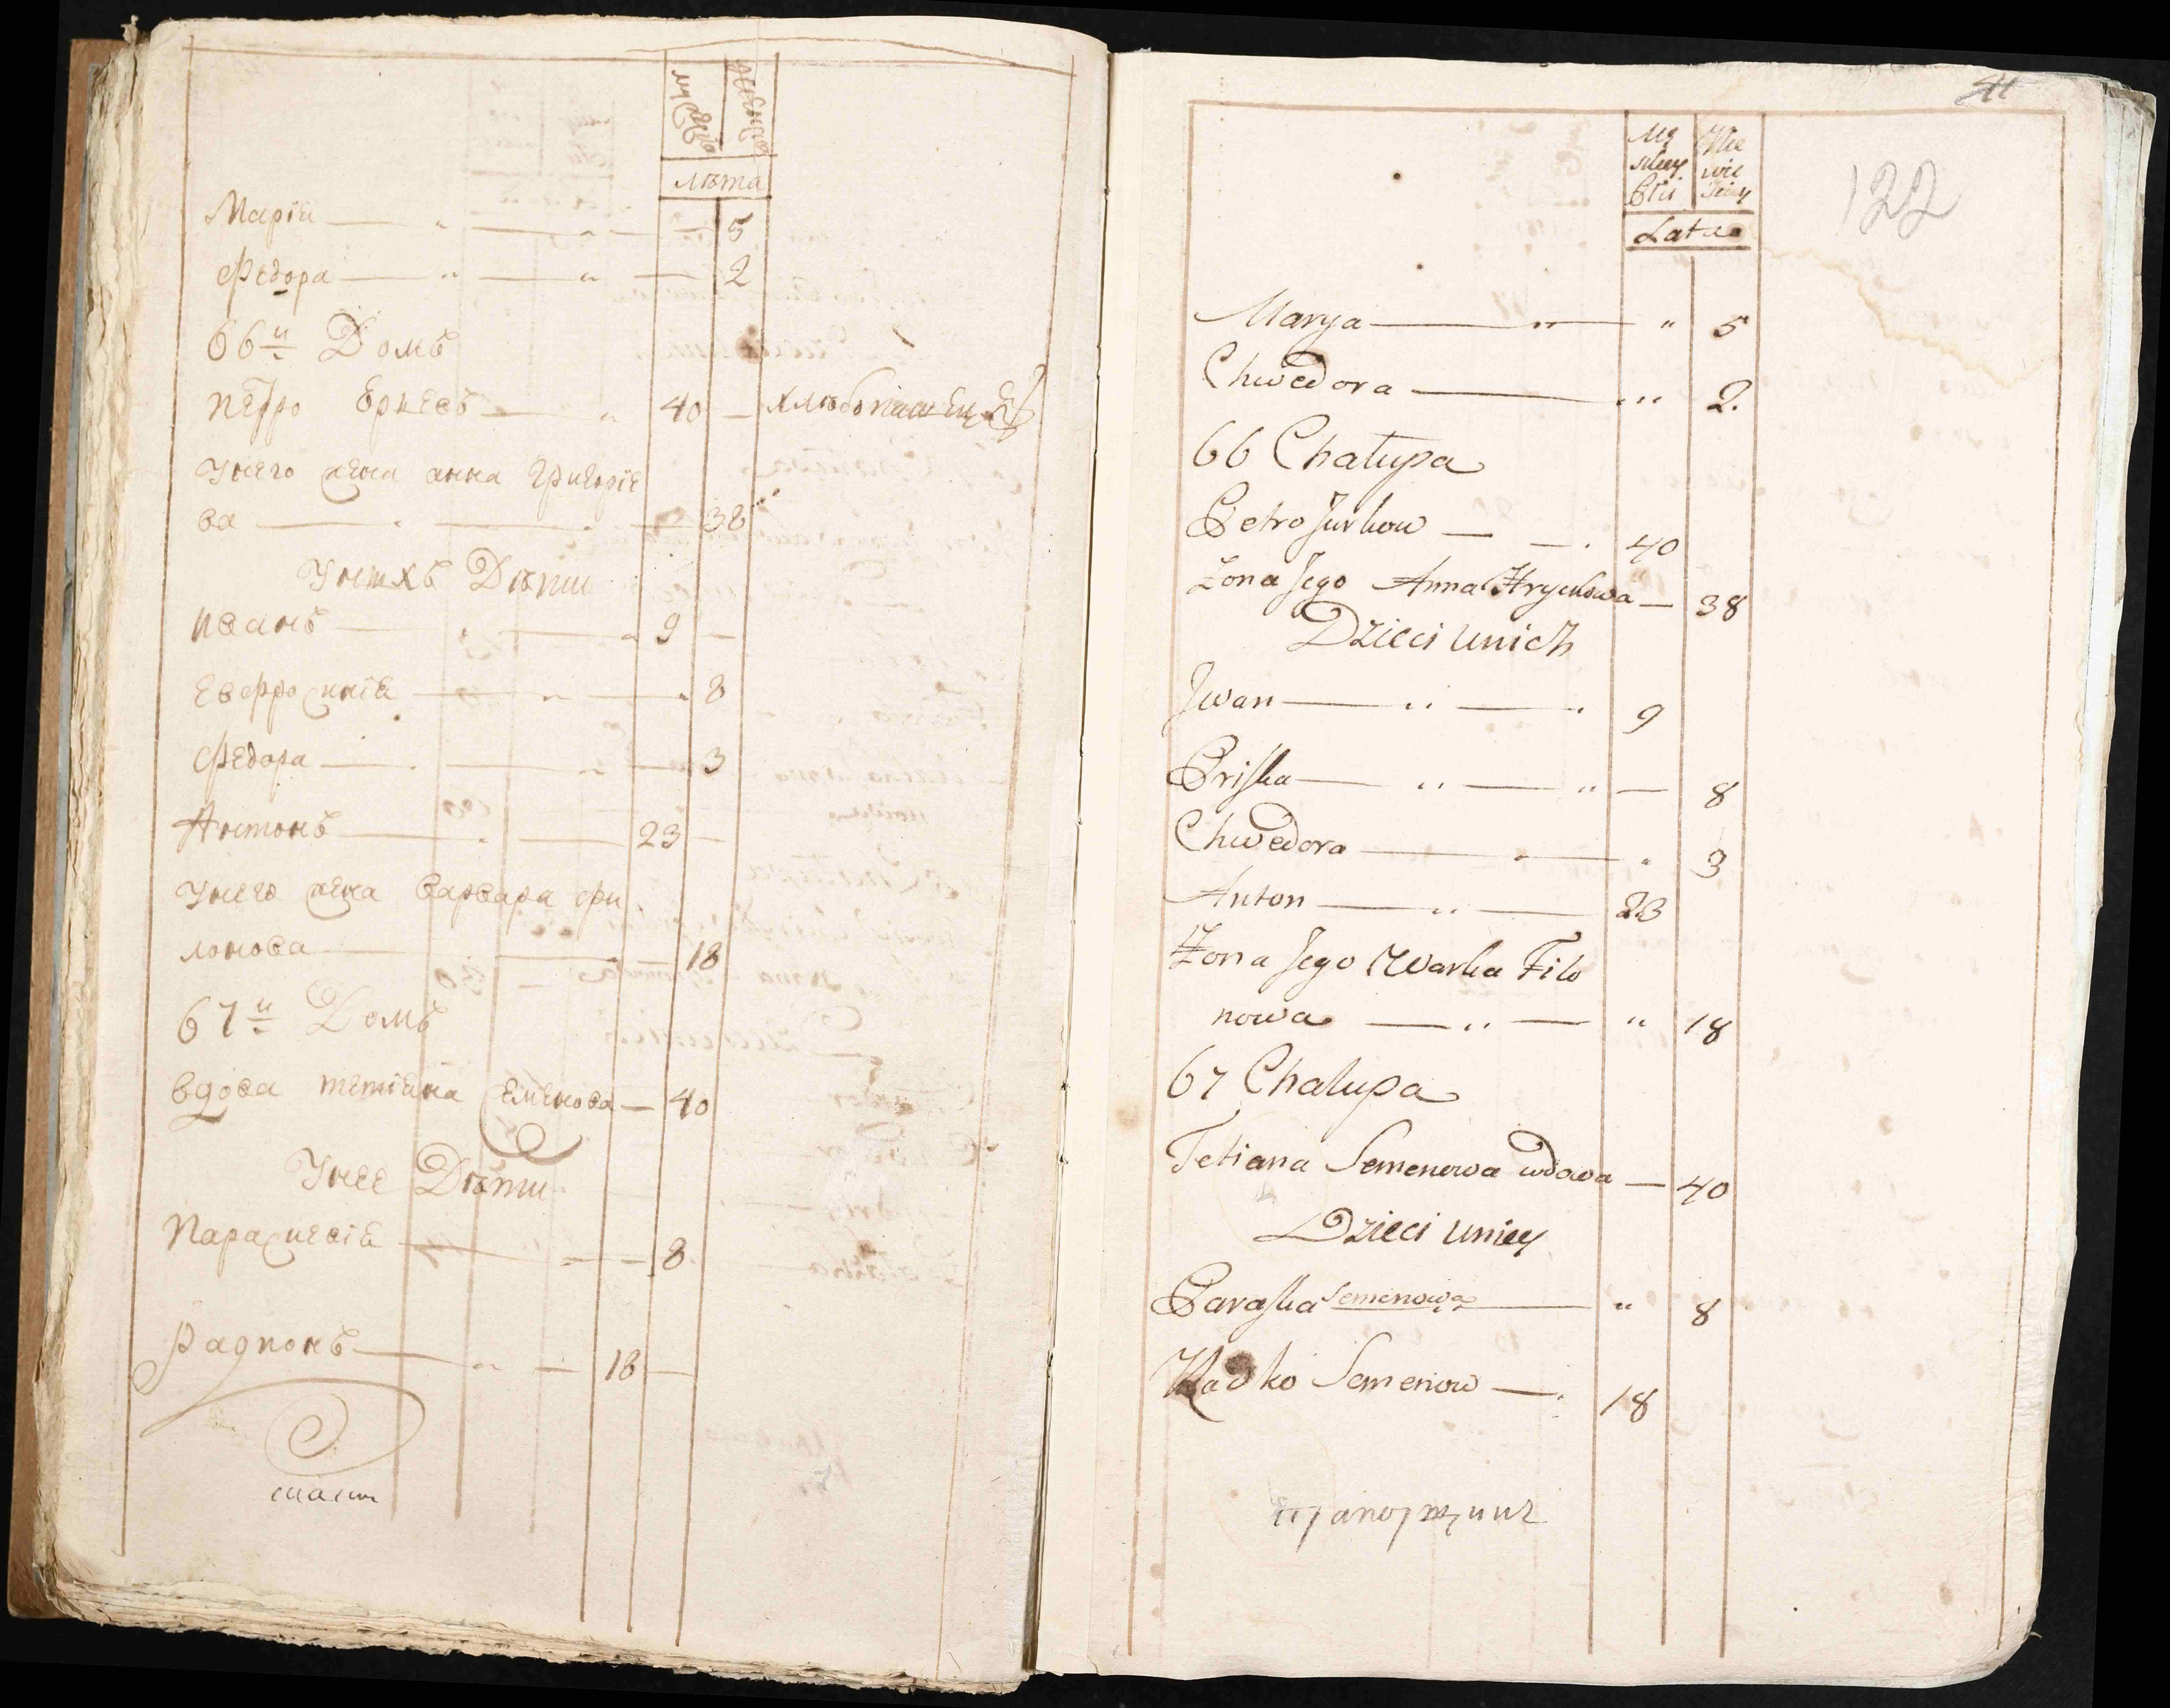 лѣта
Марія — " — " — 5
Федора — " — " — 2
66й Домъ
Петро Еркевъ — " 40 — хлѣбопашецъ
Унего жена анна Григоріе
ва — " — " — 38
Унихъ Дѣти
иванъ — " — " 9 —
Евфросинія — " — " 8
Федора — " — " — 3
Антонъ — " — 23 —
Унего жена варвара фи
лонова — — 18
67й Домъ
вдова тетіяна Семенова — 40
Унее Дѣти
Параскевія — — — 8
Радионъ — " — 18 —
41
122
Mę
skiey
Płci
Nie
wie
sciey
Lata
Marya — " — " 5
Chwedora — " 2.
66 Chałupa
Petro Jurkow — — . 40
Żona Jego Anna Hrycko­wa — 38
Dzieci unich
Jwan — " — " 9
Priska — " — " — 8
Chwedora — " — " 3
Anton — " — 23
Żona Jego Warka Filo
nowa — " — " 18
67 Chalupa
Tetiana Semenowa wdowa — 40
Dzieci uniey
Paraska Semenowa — " 8
Radko Semenow — . 18